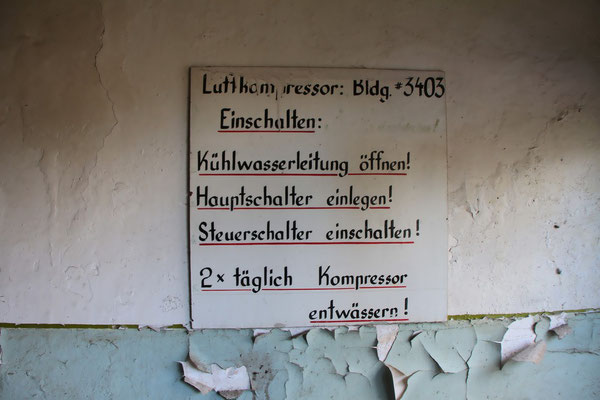 Luftkompressor: Bldg. #3403
Einschalten:
Kühlwasserleitung öffnen!
Hauptschalter einlegen!
Steuerschalter einschalten!
2 x täglich Kompressor
entwässern!